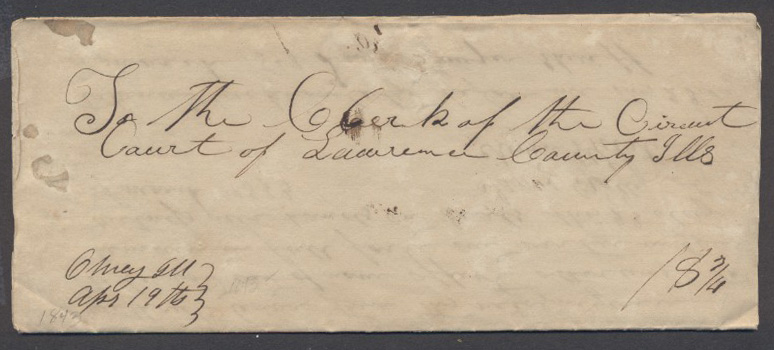 To the Clerk of the Circuit
Court of Lawrence County Ills
Olney Ill
Apr 19th
1842
18 3/4